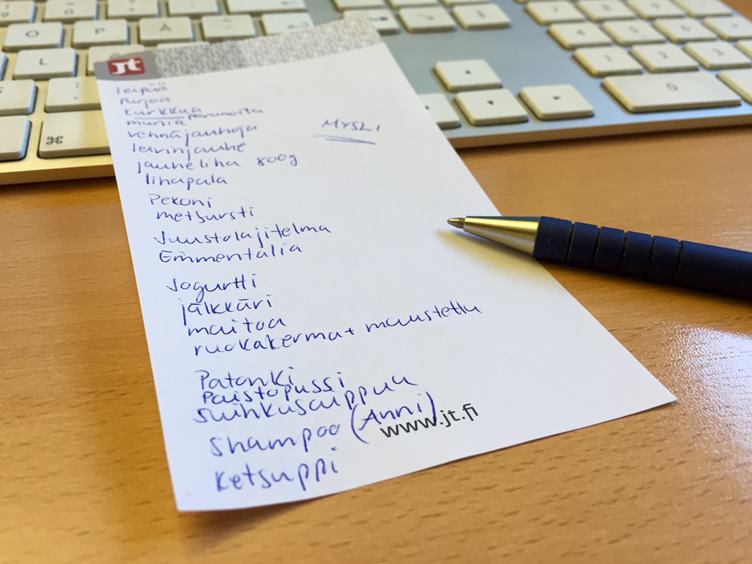 jt
leipää
Purjoa
kurkkua
munia perunoita
vehnäjauhoja
leivinjauhe
jauheliha 800g
lihapala
MYSLI
Pekoni
metsursti
Juustolajitelma
Emmentalia
Jogurtti
jälkkäri
maitoa
ruokakerma + maustettu
Patonki
Paistopussi
suihkusaippua
shampoo (Anni)
www.jt.fi
ketsuppi